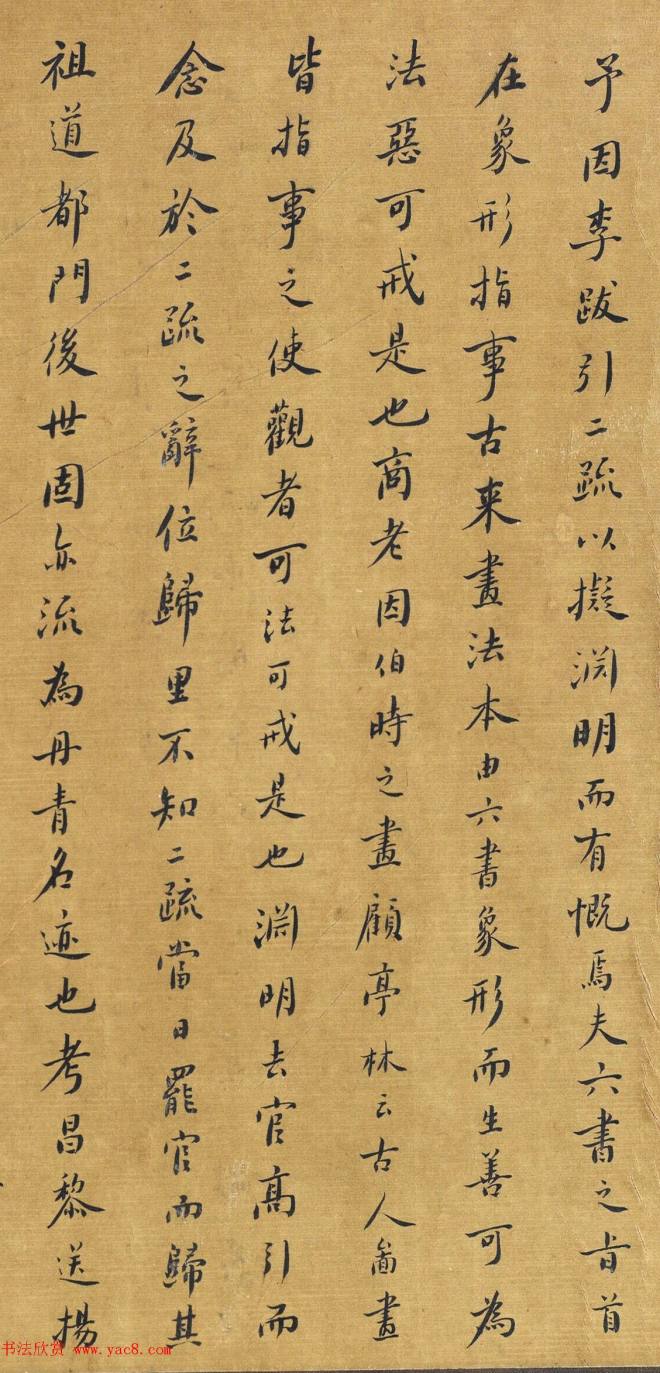 予因李跋引二疏以擬淵明而有慨焉夫六書之旨首
在象形指事古来畫法本由六書象形而生善可為
法惡可戒是也商老因伯時之畫顧亭林云古人啚畫
皆指事之使觀者可法可戒是也淵明去官高引而
念及於二疏之辭位歸里不知二疏當日罷官而歸其
祖道都門後世固亦流為丹青名迹也考昌黎送楊
书法欣赏 www.yac8.com